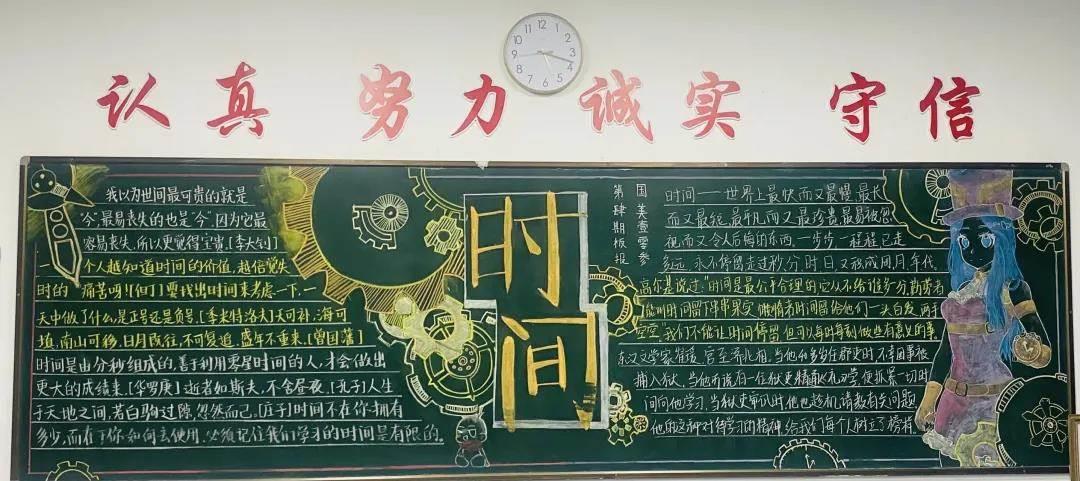 认真 努力 诚实 守信
我以为世间最可贵的就是
“今”,最易丧失的也是“今”,因为它最
容易丧失,所以更觉得宝贵。[李大钊]
一个人越知道时间的价值,越倍觉失
时的痛苦呀![但丁]要找出时间来考虑一下,一
天中做了什么,是正号还是负号。[季米特洛夫]天可补,海可
填,南山可移。日月既往,不可复追。盛年不重来。[曾国藩]
时间是由分秒组成的,善于利用零星时间的人,才会做出
更大的成绩来。[华罗庚]逝者如斯夫,不舍昼夜。[孔子]人生
于天地之间,若白驹过隙,忽然而已。[庄子]时间不在你拥有
多少,而在于你如何去使用。必须记住我们学习的时间是有限的。
时间
国美壹零参
第肆期板报
时间——世界上最快而又最慢,最长
而又最短,最平凡而又最珍贵,最易被忽
视而又令人后悔的东西,一步步一程程已走
多远,永不停留走过秒、分、时、日,又织成周、月、年代。
高尔基说过:“时间是最公平合理的,它从不给谁多一分,勤劳者
能叫时间留下串串果实,懒惰者时间留给他们一头白发,两手
空空。”我们不能让时间停留,但可以每时每刻做些有意义的事。
东汉文学家崔瑗,官至济北相,当他40多岁任郡吏时,不幸因事被
捕入狱,当他听说有一位狱吏精
便抓紧一切时
间向他学习,当狱吏审讯时他也趁机请教有关问题,
他的这种对待学习的精神,给我们每个人树立了榜样。